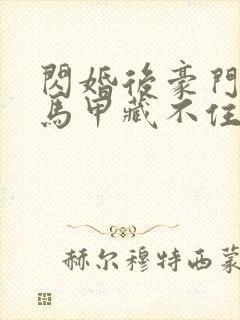 閃婚後豪門
馬甲藏不住
赫尔穆特西蒙